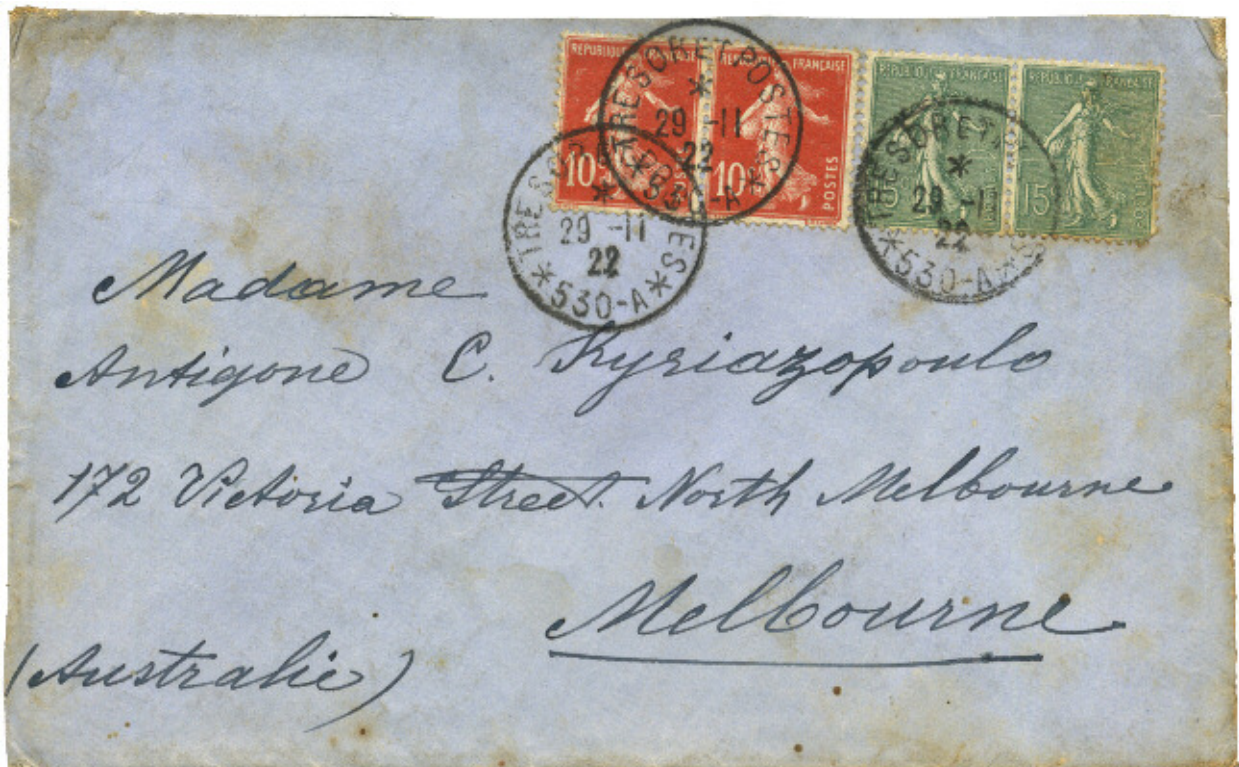 REPUBLIQUE FRANÇAISE
REPUBLIQUE FRANÇAISE
REPUBLIQUE FRANÇAISE
REPUBLIQUE FRANÇAISE
10
10
POSTES
15
15
TRESOR ET POSTES
29 -11
22
530-A
TRESOR ET POSTES
29 -11
22
530-A
TRESOR ET POSTES
29 -11
22
530-A
Madame
Antigone C. Kyriazopoulo
172 Victoria Street North Melbourne
Melbourne
(Australie)